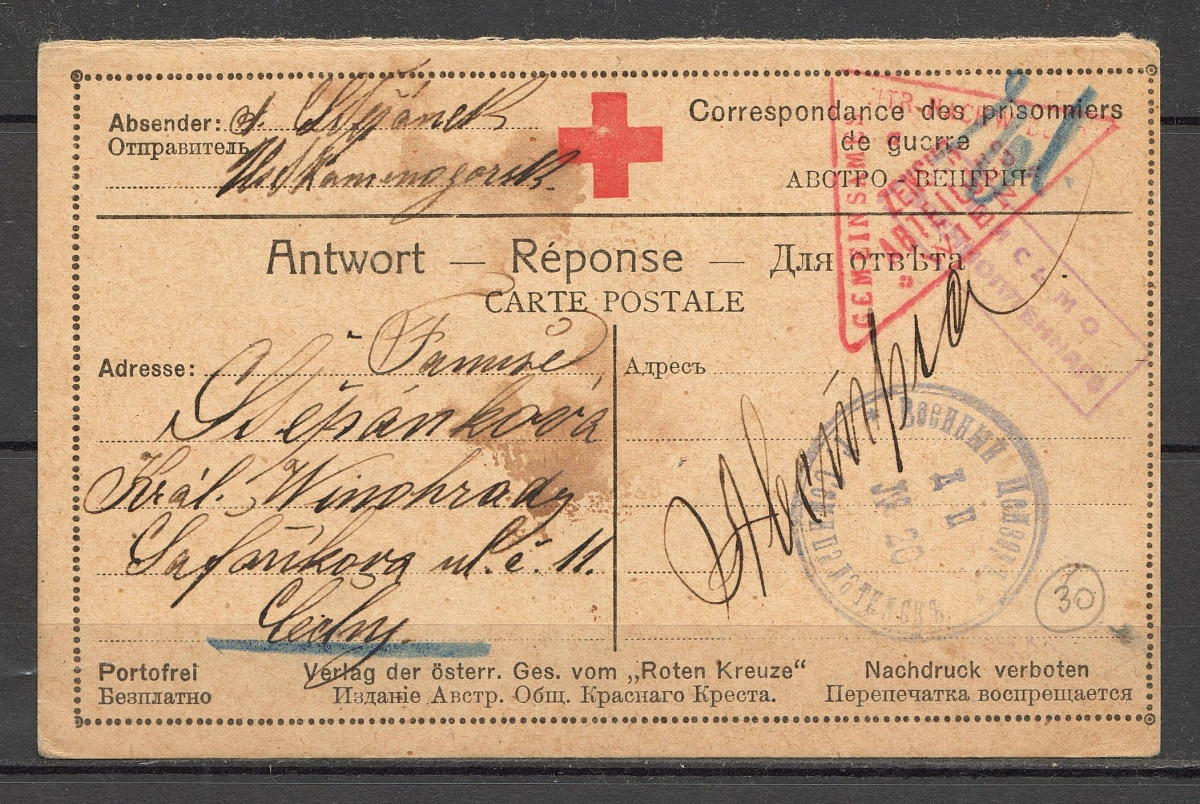 Absender: A. Štěpánek
Отправитель
Ustkamenogorsk.
Correspondance des prisonniers
de guerre
АВСТРО - ВЕНГРІЯ
GEMEINSAMES
ZENSUR
WIEN
Antwort — Réponse — Для отвѣта
CARTE POSTALE
Adresse:
Štěpánková
Král. Winohrady
Šafaříkova ul. č. 11.
Čechy.
Адресъ
письмо
военноплѣннаго
Военный Цензоръ
30
Portofrei
Безплатно
Verlag der österr. Ges. vom „Roten Kreuze“
Изданіе Австр. Общ. Краснаго Креста.
Nachdruck verboten
Перепечатка воспрещается